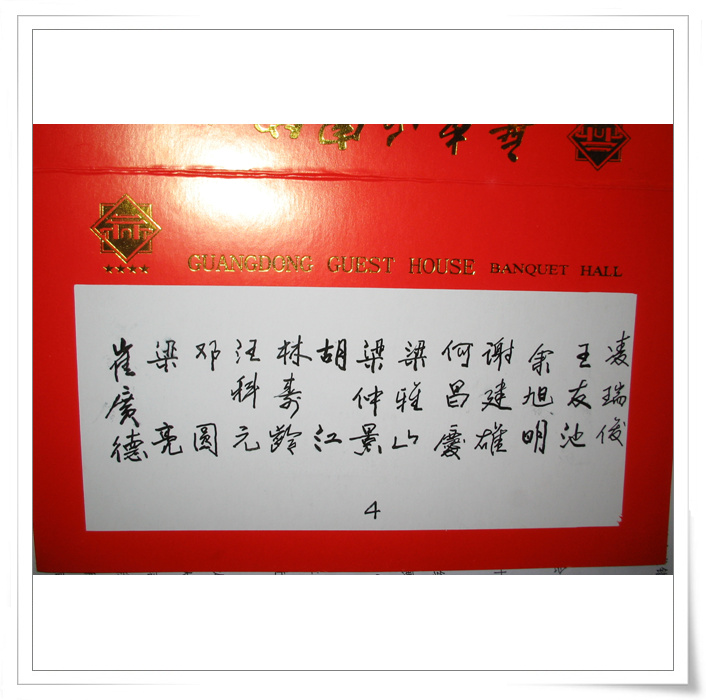 GUANGDONG GUEST HOUSE BANQUET HALL
凌瑞俊
王友池
余旭明
谢建雄
何昌慶
梁雅山
梁仲景
胡江
林壽齡
汪科元
邓圆
梁亮
崔廣德
4